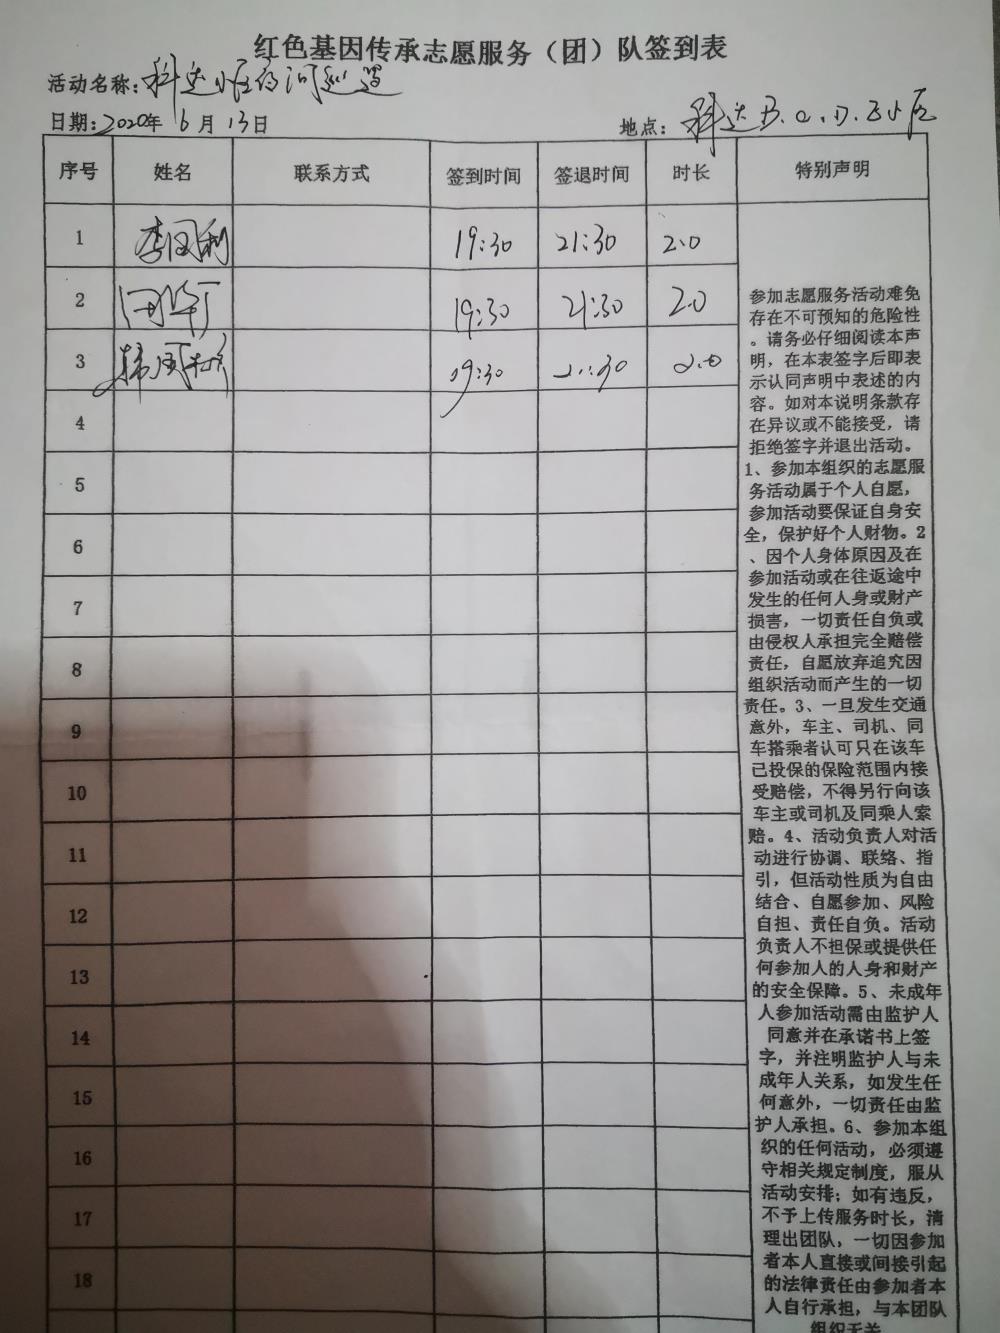 红色基因传承志愿服务（团）队签到表
活动名称：科达小区夜间巡逻
日期：2020年6月13日
地点：科达B.C.D.E小区
序号 姓名 联系方式 签到时间 签退时间 时长 特别声明
1 李国利 19:30 21:30 2.0
2 19:30 21:30 2.0
3 19:30 21:30 2.0
4
5
6
7
8
9
10
11
12
13
14
15
16
17
18
参加志愿服务活动难免
存在不可预知的危险性
。请务必仔细阅读本声
明，在本表签字后即表
示认同声明中表述的内
容。如对本说明条款存
在异议或不能接受，请
拒绝签字并退出活动。
1、参加本组织的志愿服
务活动属于个人自愿，
参加活动要保证自身安
全，保护好个人财物。2
、因个人身体原因及在
参加活动或在往返途中
发生的任何人身或财产
损害，一切责任自负或
由侵权人承担完全赔偿
责任，自愿放弃追究因
组织活动而产生的一切
责任。3、一旦发生交通
意外，车主、司机、同
车搭乘者认可只在该车
已投保的保险范围内接
受赔偿，不得另行向该
车主或司机及同乘人索
赔。4、活动负责人对活
动进行协调、联络、指
引，但活动性质为自由
结合、自愿参加、风险
自担、责任自负。活动
负责人不担保或提供任
何参加人的人身和财产
的安全保障。5、未成年
人参加活动需由监护人
同意并在承诺书上签
字，并注明监护人与未
成年人关系，如发生任
何意外，一切责任由监
护人承担。6、参加本组
织的任何活动，必须遵
守相关规定制度，服从
活动安排；如有违反，
不予上传服务时长，清
理出团队，一切因参加
者本人直接或间接引起
的法律责任由参加者本
人自行承担，与本团队
组织无关